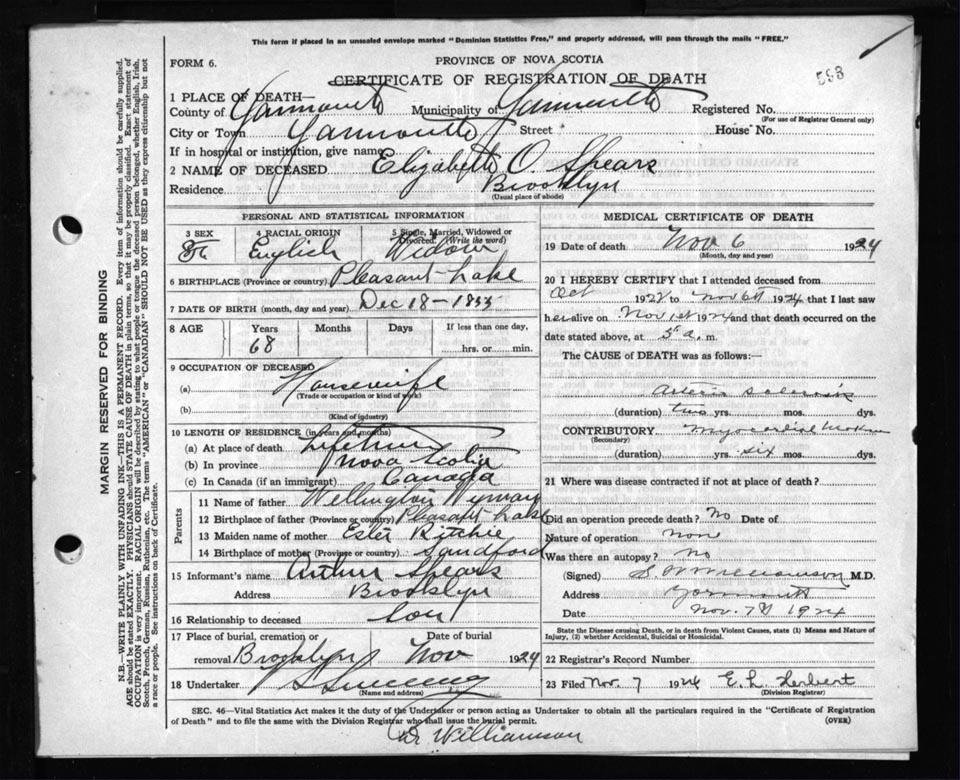 This form if placed in an unsealed envelope marked "Dominion Statistics Free," and properly addressed, will pass through the mails "FREE."
FORM 6.
PROVINCE OF NOVA SCOTIA
CERTIFICATE OF REGISTRATION OF DEATH
593
1 PLACE OF DEATH—
County of Yarmouth Municipality of Yarmouth Registered No.
(For use of Registrar General only)
City or Town Yarmouth Street House No.
If in hospital or institution, give name
2 NAME OF DECEASED Elizabeth O. Spears
Residence Brooklyn
(Usual place of abode)
PERSONAL AND STATISTICAL INFORMATION
3 SEX 4 RACIAL ORIGIN 5 Single, Married, Widowed or Divorced. (Write the word)
English Widow
6 BIRTHPLACE (Province or country) Pleasant Lake
7 DATE OF BIRTH (month, day and year) Dec 18 - 1855
8 AGE Years Months Days If less than one day,
68 hrs. or min.
9 OCCUPATION OF DECEASED
(a) Housewife
(Trade or occupation or kind of work)
(b)
(Kind of industry)
10 LENGTH OF RESIDENCE (in years and months)
(a) At place of death Lifetime
(b) In province Nova Scotia
(c) In Canada (if an immigrant) Canada
Parents
11 Name of father Wellington Wyman
12 Birthplace of father (Province or country) Pleasant Lake
13 Maiden name of mother Ester Ritchie
14 Birthplace of mother (Province or country) Sandford
15 Informant's name Arthur Spears
Address Brooklyn
16 Relationship to deceased son
17 Place of burial, cremation or Date of burial
removal Brooklyn Nov 1924
18 Undertaker
(Name and address)
MEDICAL CERTIFICATE OF DEATH
19 Date of death Nov 6 1924
(Month, day and year)
20 I HEREBY CERTIFY that I attended deceased from
Oct 1922 to Nov 6th 1924 that I last saw
her alive on Nov 1st 1924 and that death occurred on
date stated above, at 5 a.m.
The CAUSE of DEATH was as follows:
Arterio sclerosis
(duration) two yrs. mos. dys.
CONTRIBUTORY Myocardial
(Secondary)
(duration) yrs. six mos. dys.
21 Where was disease contracted if not at place of death?
Did an operation precede death? No Date of
Nature of operation None
Was there an autopsy? No
(Signed) S. W Williamson M.D.
Address Yarmouth
Date Nov. 7th 1924
State the Disease causing Death, or in death from Violent Causes, state (1) Means and Nature of
Injury, (2) whether Accidental, Suicidal or Homicidal.
22 Registrar's Record Number
23 Filed Nov. 7 1924 E. L. Herbert
(Division Registrar)
SEC. 46—Vital Statistics Act makes it the duty of the Undertaker or person acting as Undertaker to obtain all the particulars required in the "Certificate of Registration
of Death" and to file the same with the Division Registrar who shall issue the burial permit.
(OVER)
Dr Williamson
MARGIN RESERVED FOR BINDING
N.B.—WRITE PLAINLY WITH UNFADING INK—THIS IS A PERMANENT RECORD. Every item of information should be carefully supplied.
AGE should be stated EXACTLY. PHYSICIANS should STATE CAUSE OF DEATH in plain terms, so that it may be properly classified. Exact statement of
OCCUPATION is very important. RACIAL ORIGIN will be described by stating to what people or tongue the deceased person belonged, whether English, Irish,
Scotch, French, German, Russian, Ruthenian, etc. The terms "AMERICAN" or "CANADIAN" SHOULD NOT BE USED as they express citizenship but not
a race or people. See instructions on back of Certificate.